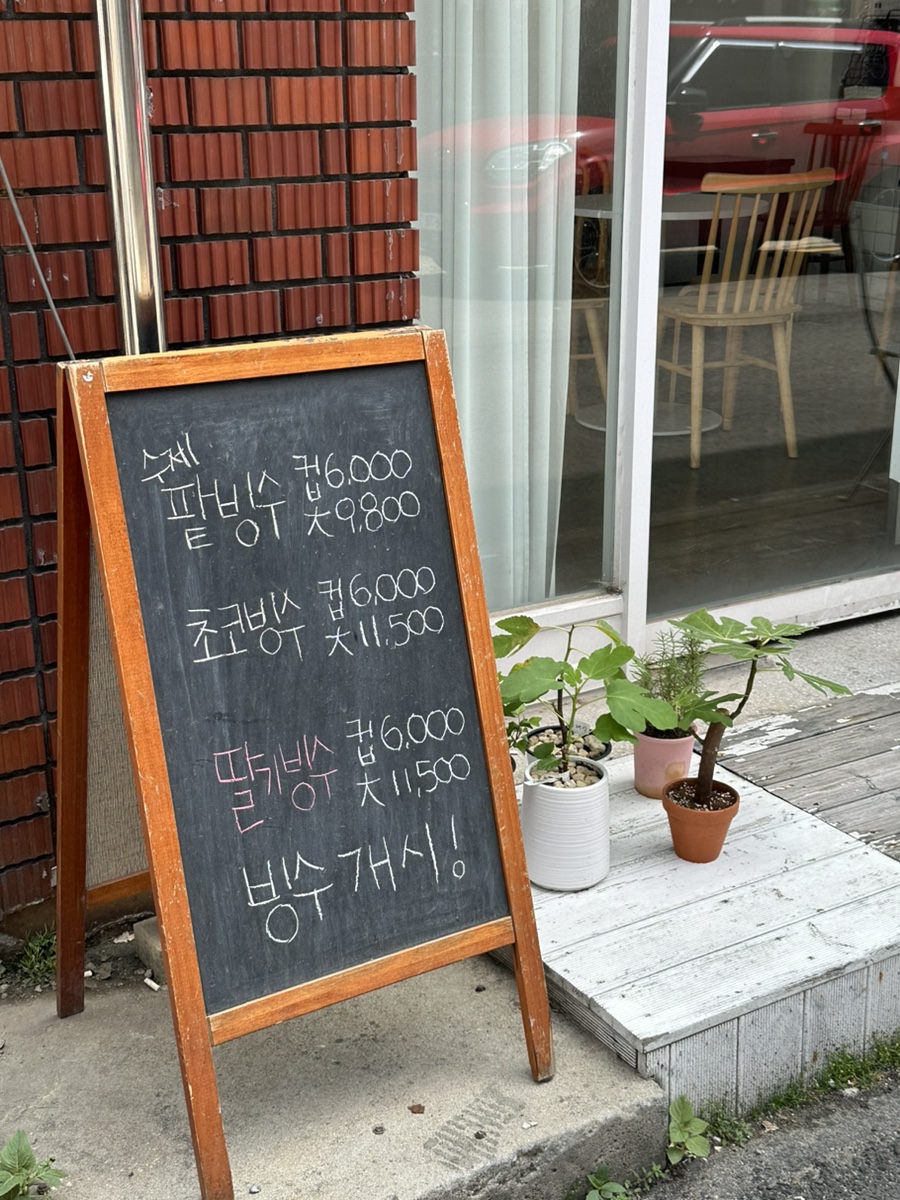 수제
팥빙수 컵6,000
大9,800
초코빙수 컵6,000
大11,500
딸기빙수 컵6,000
大11,500
빙수 개시!